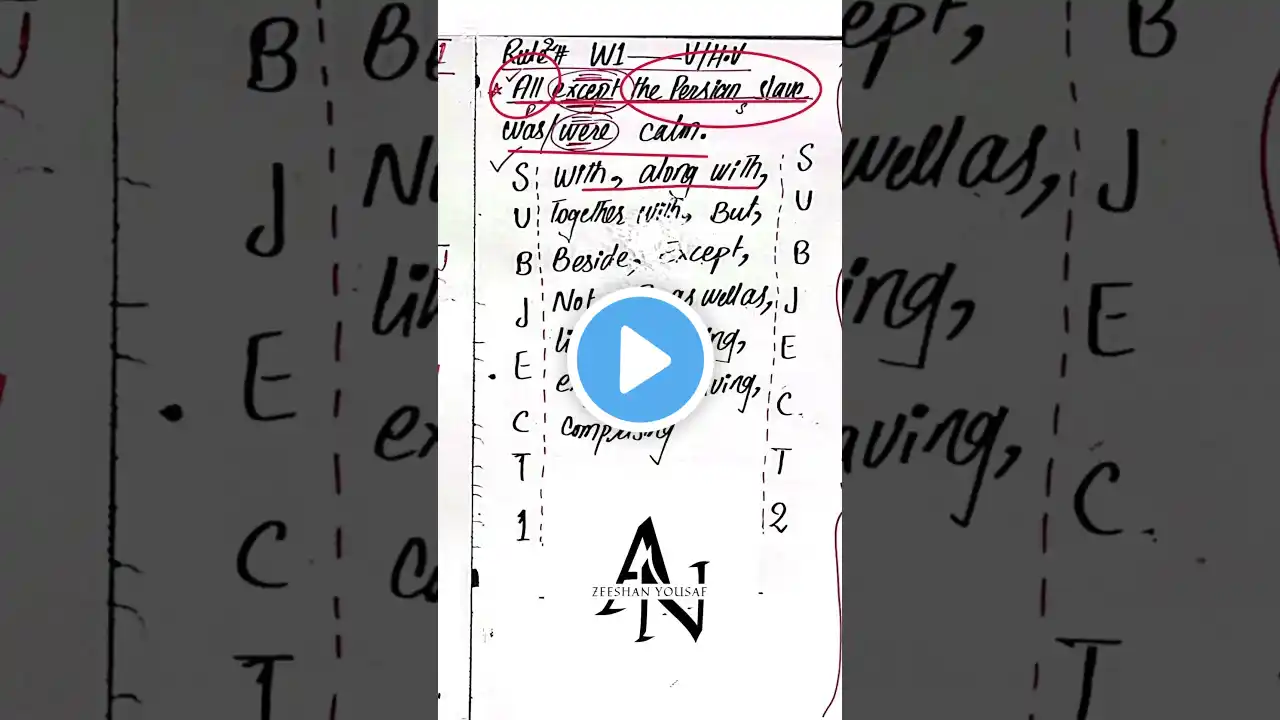 Rule# 2 W1 — V/H.V
* All except the Persian slave
P S
was/were calm.
SUBJECT 1
with, along with,
Together with, But,
Beside, Except,
Not as well as,
comprising
SUBJECT 2
AN
ZEESHAN YOUSAF